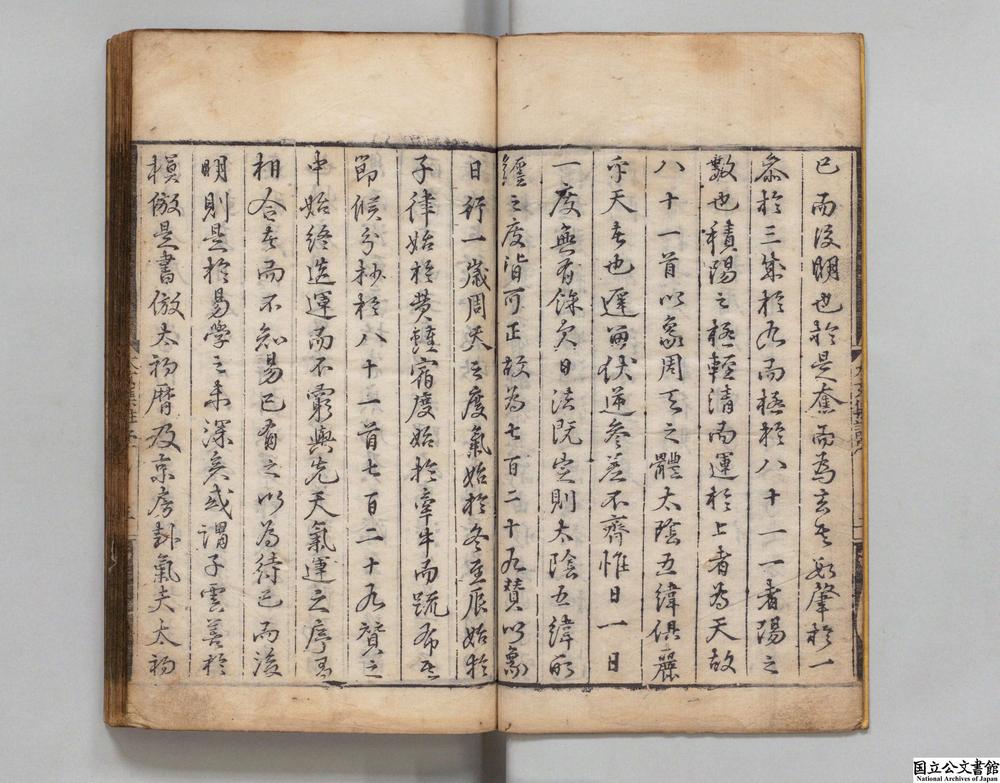 已而後明也於是奮而為玄其數肇於一
叅於三衆於九而極於八十一一者陽之
數也積陽之極輕清而運於上者為天故
八十一首以象周天之體太陰五緯俱麗
乎天者也遲留伏逆參差不齊惟日一日
一度無有餘欠日法既定則太陰五緯所
纏之度皆可正故為七百二十九贊以象
日行一歲周天之度氣始於冬至辰始於
子律始於黄鍾宿度始於牽牛而疏布其
節候分杪於八十一首七百二十九贊之
中始終迭運而不窮與先天氣運之序
相合者而不知易已有之以為待已而後
明則是於易學之未深矣或謂子雲善於
模倣是書倣太初曆及京房卦氣夫太初
国立公文書館
National Archives of Japan